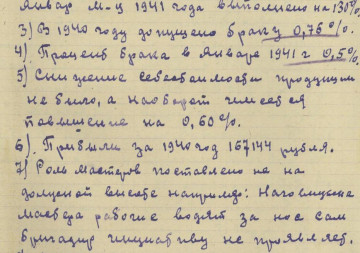 Январ м-ц 1941 года выполнено на 130%.
3) В 1940 году допущено браку 0,76%.
4) Процент брака в январе 1941 г 0,5%
5) Снижение себестоимости продукции
не было, а наоборот имеется
повышение на 0,60%.
6) Прибыли за 1940 год 167144 рубля.
7) Роль мастеров поставлено не на
должной высоте например:
мастера рабочие водят за нос сам
бригадир инициативу не проявляет.